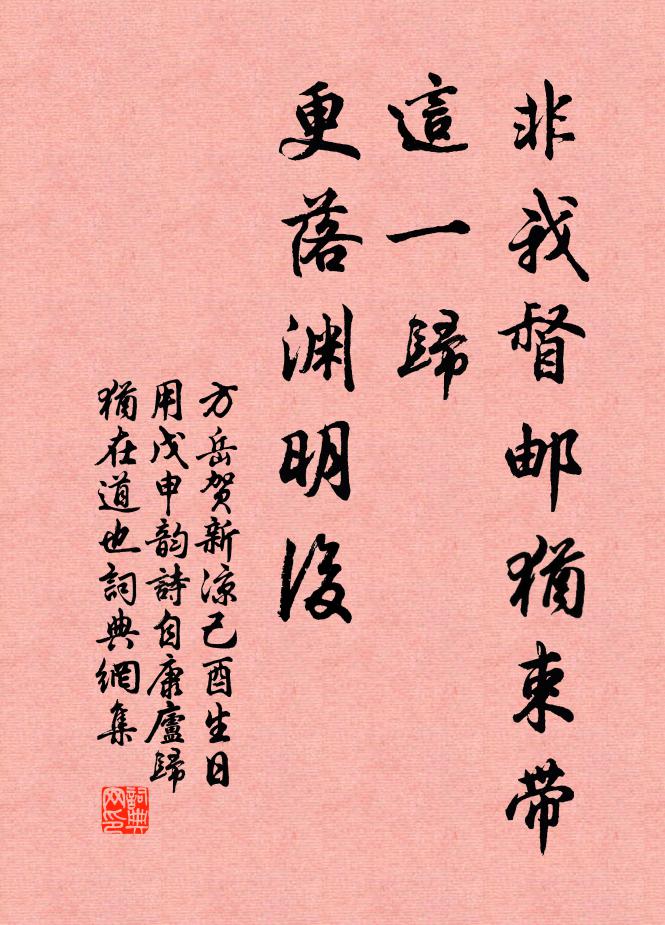 非我督邮猶束带
這一歸
更落渊明後
方岳賀新凉己酉生日
用戊申韵詩自康廬歸
猶在道也詞典網集
詞典
网印